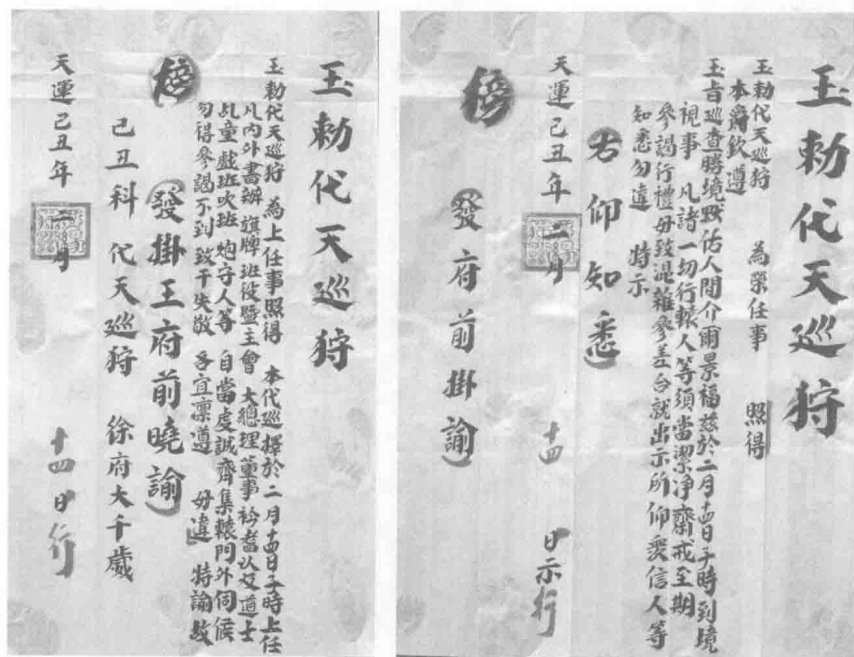 玉勅代天巡狩
玉勅代天巡狩　為榮任事　照得
本爵欽遵
玉旨巡查勝境默佑人間介爾景福茲於二月十四日子時到境
視事　凡諸一切行轅人等須當潔净齋戒至期
參謁行禮毋致混雜參差合就出示所仰爰信人等
知悉勿違　特示
右仰知悉
天運己丑年二月　十四　日示行
榜　發府前掛諭
玉勅代天巡狩
玉勅代天巡狩　為上任事照得　本代巡擇於二月十四日子時上任
凡内外書辦　旗牌班役暨主會　大總理董事　衿耆以及道士
乩童戲班吹班　炮守人等　自當虔誠齊集轅門外伺候
勿得參謁不到致干失敬　各宜凜遵　毋違　特諭
榜　發掛王府前曉諭
己丑科　代天巡狩　徐府大千歲
天運己丑年二月　十四日行